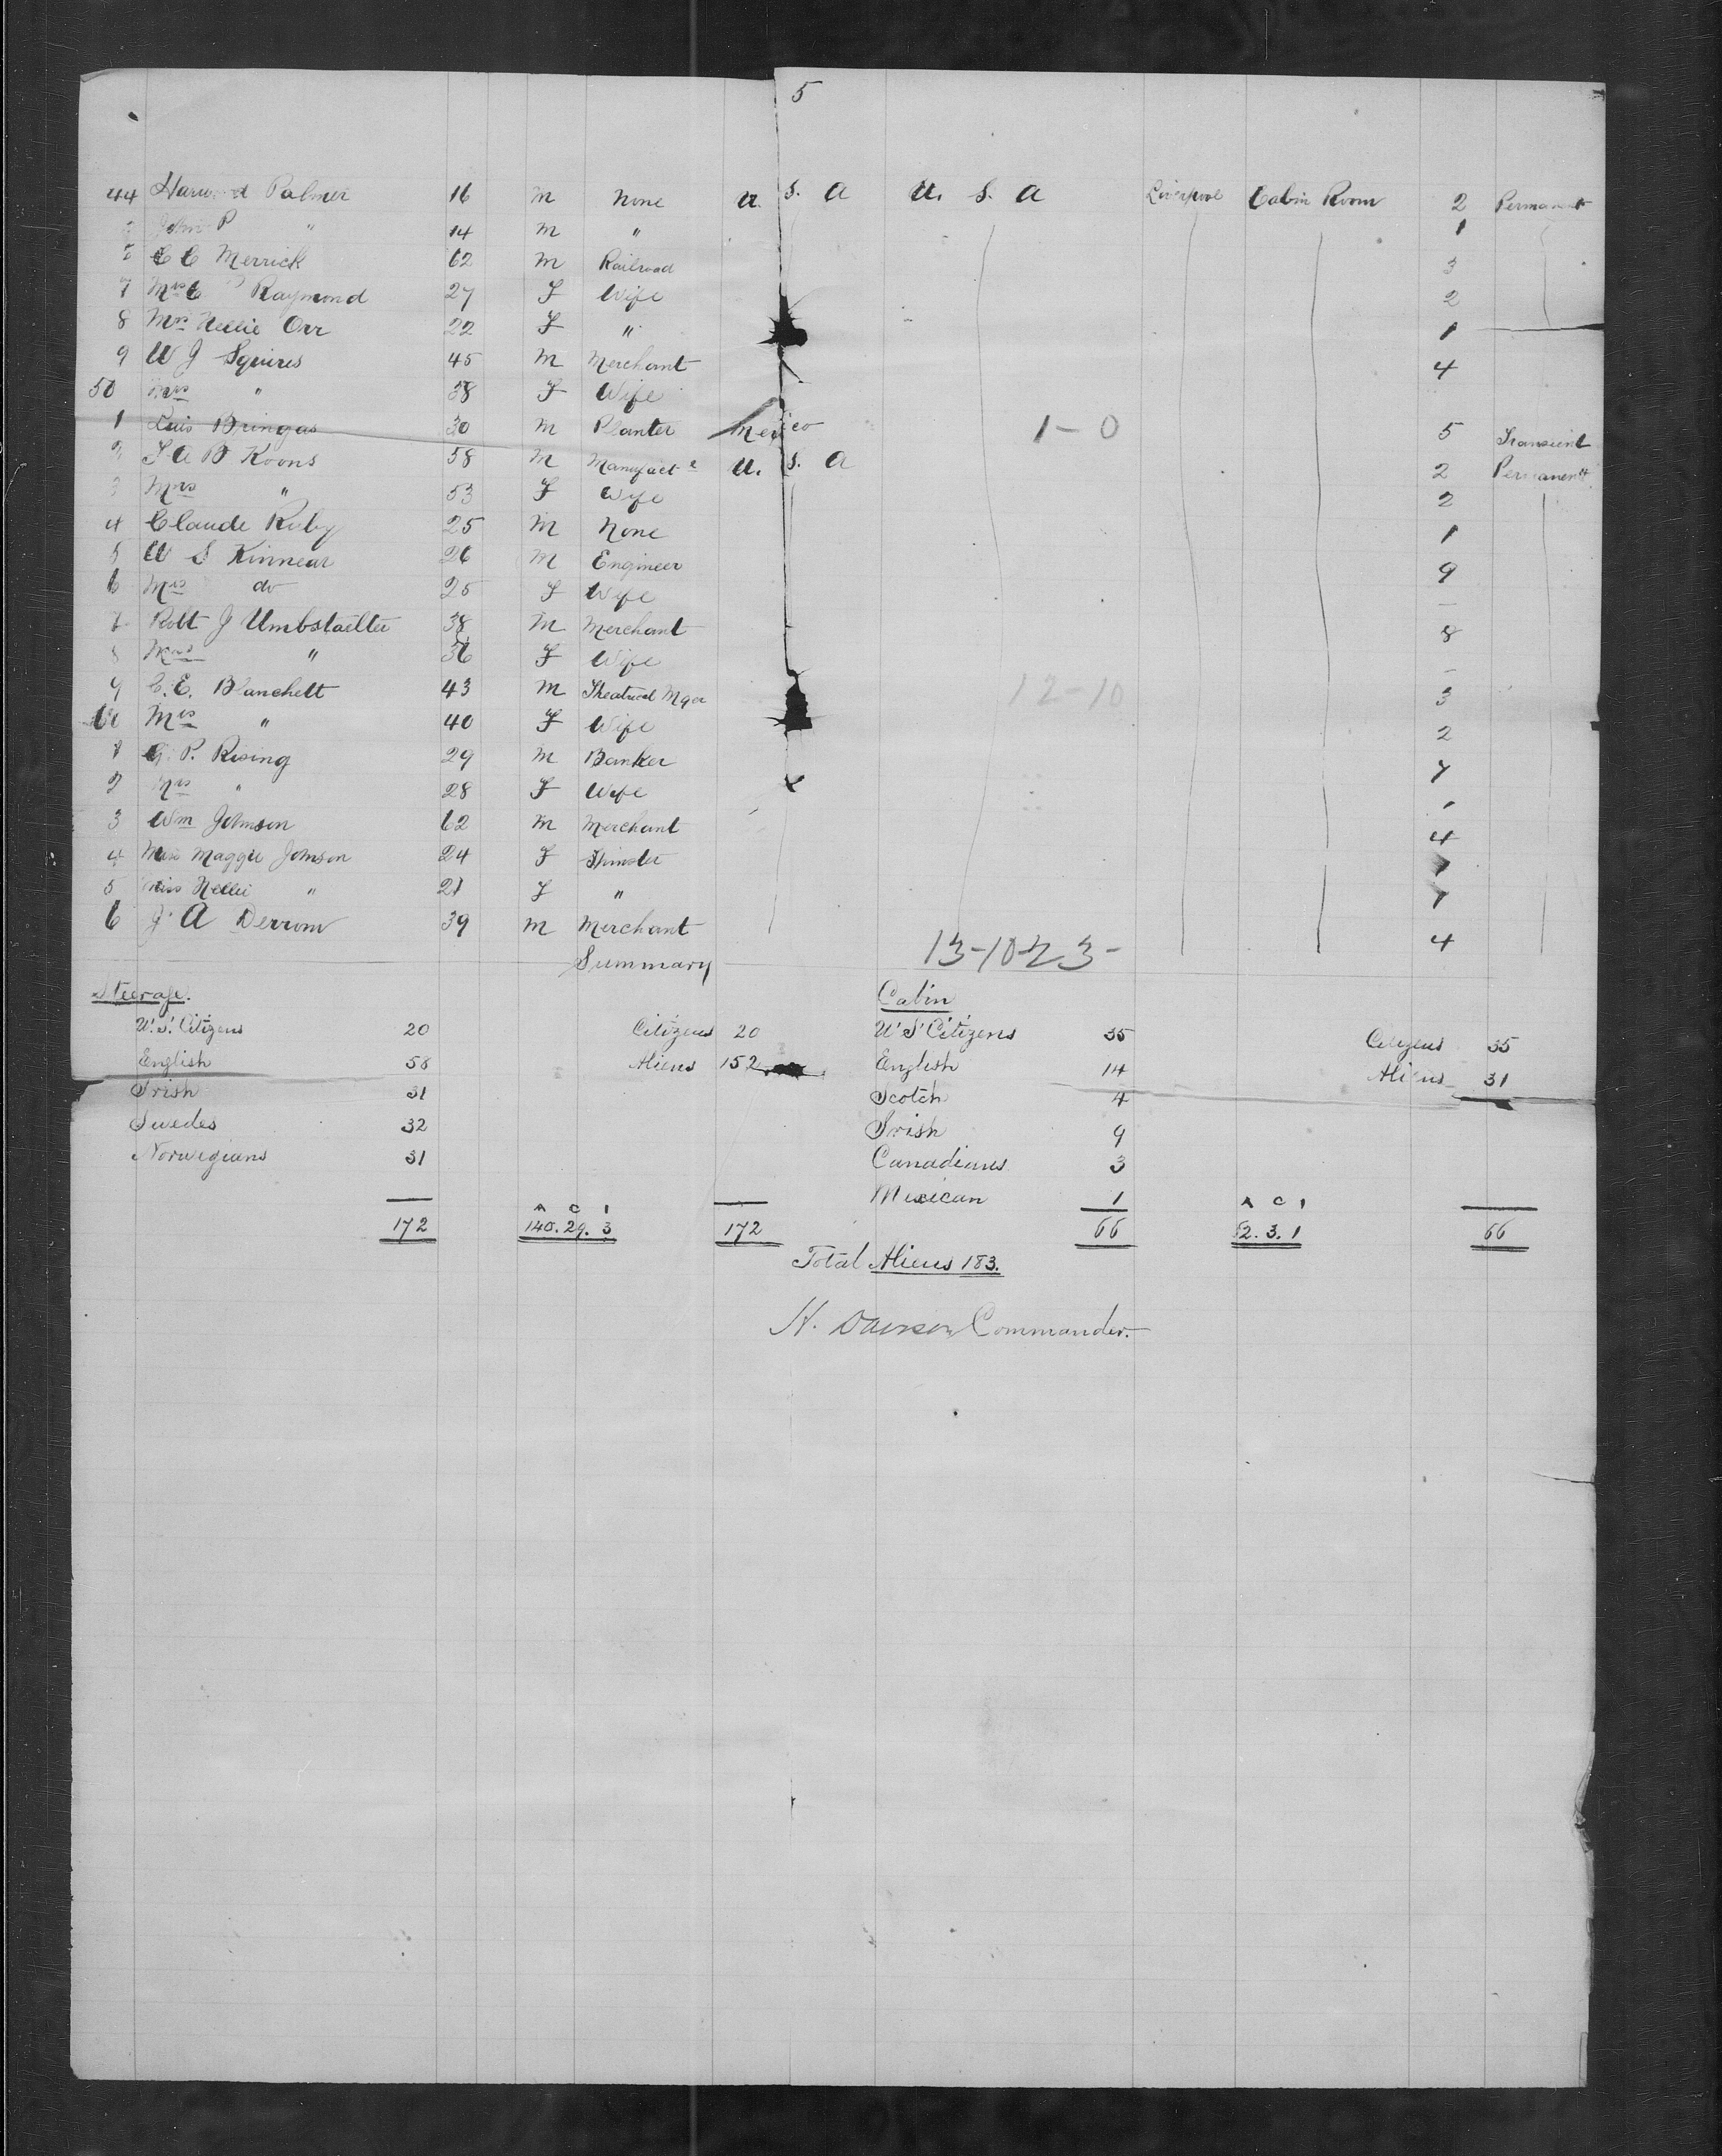 5
44 Harw d Palmer 16 m None U. S. A U. S. A Liverpool Cabin Room 2 Permanent
John P " 14 m " 1
C C Merrick 62 m Railroad 3
7 Mrs C Raymond 27 F Wife 2
8 Mrs Nellie Orr 22 F " 1
9 W J Squires 45 m Merchant 4
50 Mrs " 38 F Wife
1 Luis Bringas 30 m Planter Mexico 1-0 5 Transient
2 A B Koons 58 m Manufact r U. S. A 2 Permanent
3 Mrs " 53 F Wife 2
4 Claude Ruby 25 m None 1
5 W S Kinnear 26 m Engineer 9
6 Mrs do 25 F Wife –
7 Robt J Umbstaetter 38 m Merchant 8
8 Mrs " 36 F Wife –
9 C. E. Blanchett 43 m Theatrical Mger 12-10 3
60 Mrs " 40 F Wife 2
1 G. P. Rising 29 m Banker 7
2 Mrs " 28 F Wife
3 Wm Johnson 62 m Merchant 4
4 Miss Maggie Johnson 24 F Spinster 7
5 Miss Nellie " 21 F " 7
6 J A Derrom 39 m Merchant 4
Summary 13-10-23-
Steerage. Cabin
U.S. Citizens 20 Citizens 20 U S Citizens 35 Citizens 35
English 58 Aliens 152 English 14 Aliens 31
Irish 31 Scotch 4
Swedes 32 Irish 9
Norwegians 31 Canadians 3
Mexican 1
A C I A C I
172 140. 29. 3 172 66 62. 3. 1 66
Total Aliens 183.
H. Dawson Commander.